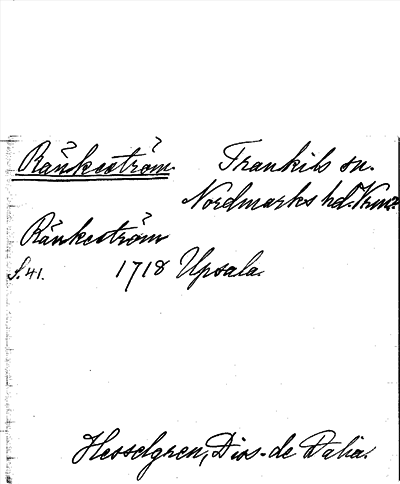 Ränkeström. Trankils sn.
Nordmarks hd. Vrml.
Ränkeström
s. 41. 1718 Upsala.
Hesselgren, Diss. de Dalia.